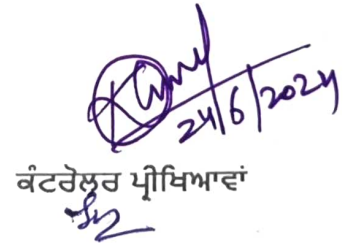 24/6/2024
ਕੰਟਰੋਲਰ ਪ੍ਰੀਖਿਆਵਾਂ